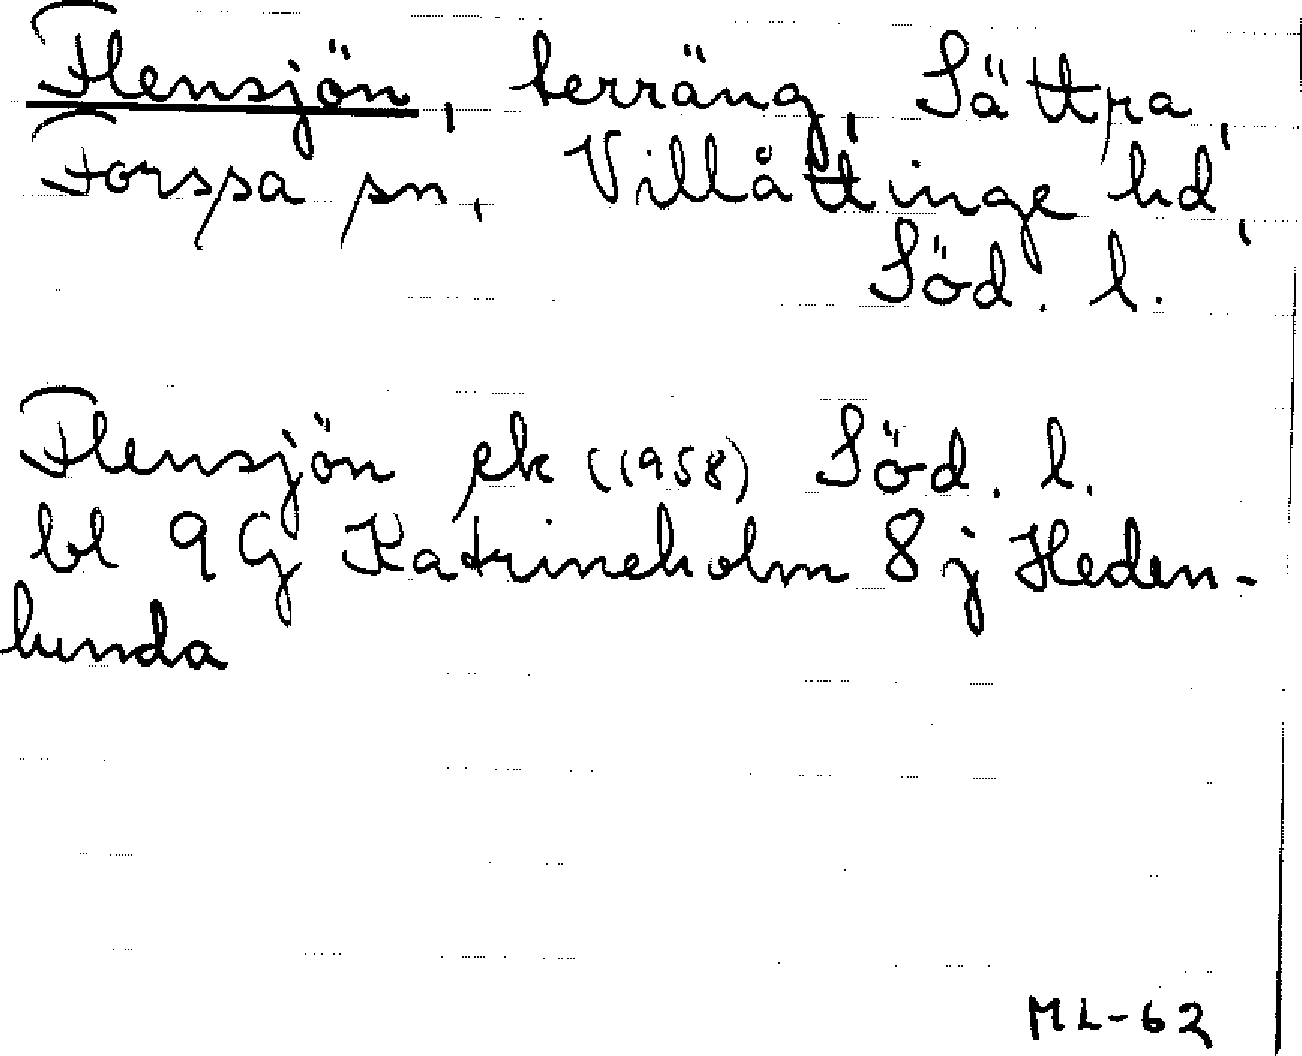 Flensjön, terräng, Sättra,
Forssa sn, Villåttinge hd,
Söd. l.
Flensjön ek (1958) Söd. l.
bl 9 G Katrineholm 8 j Heden-
lunda
ML-62